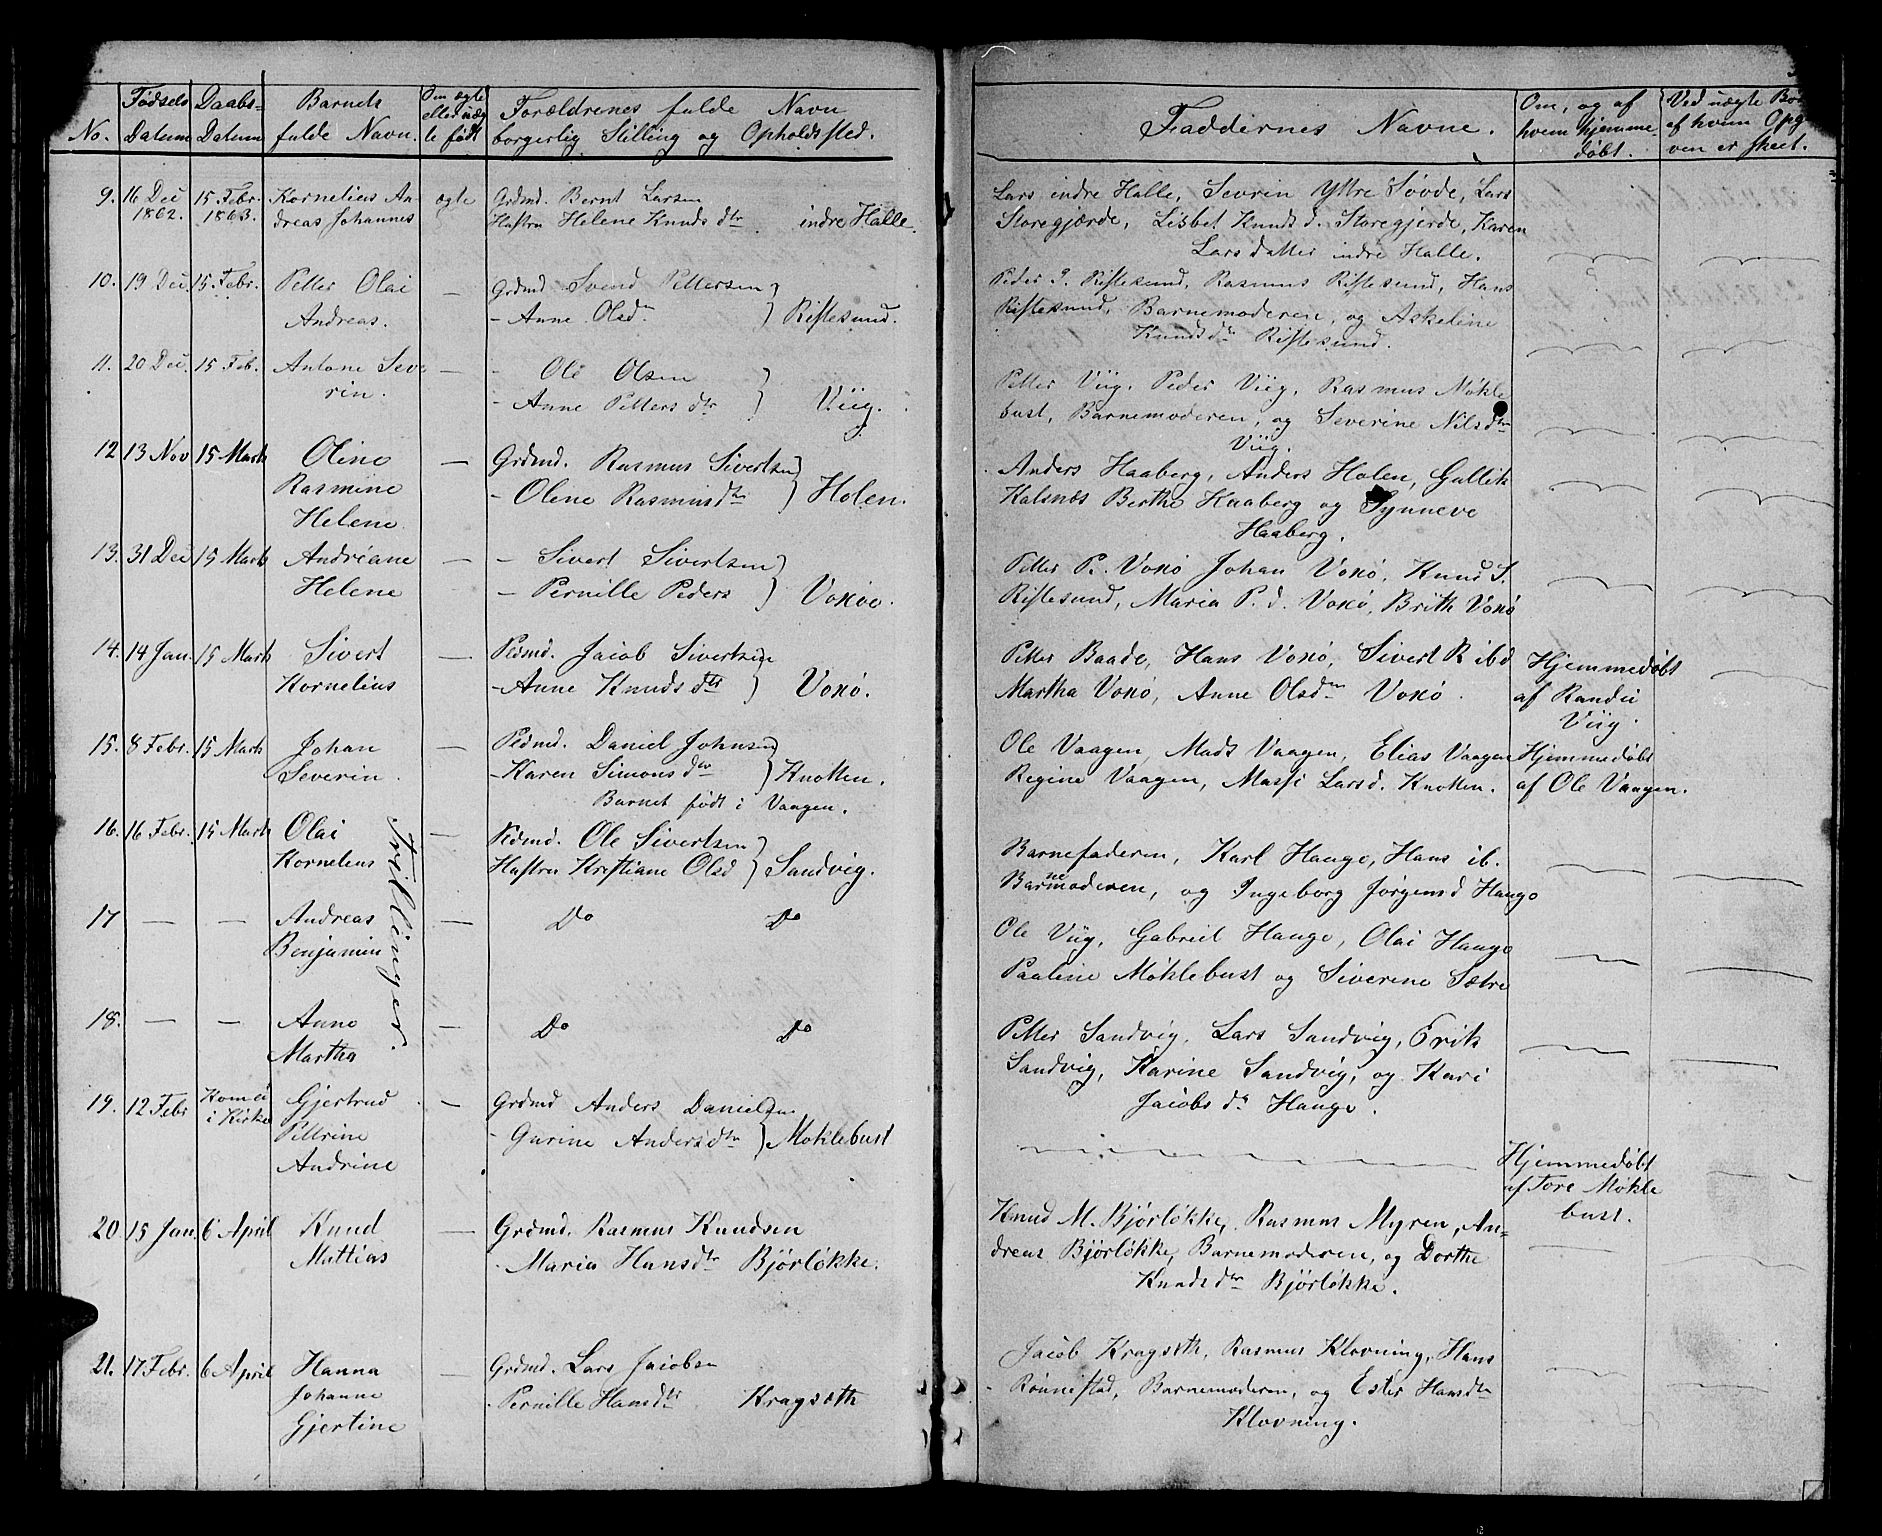 No.
Fødsels Datum
Daabs-Datum
Barnets fulde Navn.
Om ægte eller uægte født
Forældrenes fulde Navn
borgerlig Stilling og Opholdsted.
Faddernes Navne.
Om, og af hvem hjemme-døbt.
Ved uægte Bø
af hvem Opg
ven er skeet.
9. 16 Dec 15 Febr. Kornelius An- ægte Grdmd. Bernt Larsen
1862. 1863. dreas Johannes Hustru Helene Knuds dtr. indre Halle.
Lars indre Halle, Sevrin Yttre Søvde, Lars
Storegjærde, Lisbet Knuds d. Storegjerde, Karen
Larsdatter indre Halle.
10. 19 Dec 15 Febr. Petter Olai — Grdmd. Svend Pettersen
Andreas. - Anne Olsdr. Riftesund.
Peder P. Riftesund, Rasmus Riftesund, Hans
Riftesund, Barnemoderen, og Askeline
Knudsdtr Riftesund.
11. 20 Dec. 15 Feb. Antone Seve — - Ole Olsen
rin. - Anne Petters dtr Viig.
Petter Viig, Peder Viig, Rasmus Møkle
bust, Barnemoderen, og Severine Nilsdtr
Viig.
12 13 Nov 15 Marts Oline — Grdmd. Rasmus Sivertsen
Rasmine - Olene Rasmusdtr Holen.
Helene
Anders Haaberg, Anders Holen, Gullik
Kalsnæs Berthe Haaberg og Synneve
Haaberg.
13. 31 Dec 15 Marts Andreane — - Sivert Sivertsen
Helene - Pernille Peders Voxøe.
Petter P. Voxø Johan Voxø, Knud S.
Riftesund, Maria P. d. Voxø, Brith Voxø
14. 14 Jan. 15 Marts Sivert — Pdmd. Jacob Sivertsen
Kornelius - Anne Knuds dtr Voxø.
Petter Baade, Hans Voxø, Sivert R ibd
Martha Voxø, Anne Olsdtr Voxø.
Hjemmedøbt
af Randii
Viig.
15. 8 Febr. 15 Marts Johan — Pdmd. Daniel Johnsen
Severin. - Karen Simons dtr Knotten.
Barnet født i Vaagen.
Ole Vaagen, Mads Vaagen, Elias Vaagen
Regine Vaagen, Massi Larsd. Knotten.
Hjemmedøbt
af Ole Vaagen.
16. 16 Febr. 15 Marts Olai — Pdmd. Ole Sivertsen
Kornelius Hustru Kristiane Olsd Sandvig.
Trillinger.
Barnefaderen, Karl Hauge, Hans ib.
Barnemoderen, og Ingeborg Jørgensd Hauge
17 — — Andreas — Do Do
Benjamin
Ole Viig, Gabriel Hauge, Olai Hauge
Pauline Møklebust og Siverine Sætre
18. — — Anne — Do Do
Martha
Petter Sandvig, Lars Sandvig, Erik
Sandvig, Karine Sandvig, og Kari
Jacobs dr Hauge.
19. 12 Febr Kom ei Gjertrud — Grdmd Anders Danielsen
i Kirke Pettrine - Gurine Andersdtr Møklebust
Andrine
Hjemmedøbt
af Tore Møkle
bust.
20 15 Jan. 6 April Knud — Grdmd. Rasmus Knudsen
Mattias - Maria Hansdtr Bjørløkke.
Knud M. Bjørløkke, Rasmus Myren, An-
dreas Bjørløkke, Barnemoderen, og Dorthe
Knudsdtr Bjørløkke.
21. 17 Febr. 6 April Hanna — Grdmd. Lars Jacobsen
Johanne - Pernille Hansdtr Kragseth
Gjertine
Jacob Kragseth, Rasmus Klovning, Hans
Rønnestad, Barnemoderen, og Ester Hansdtr
Klovning.